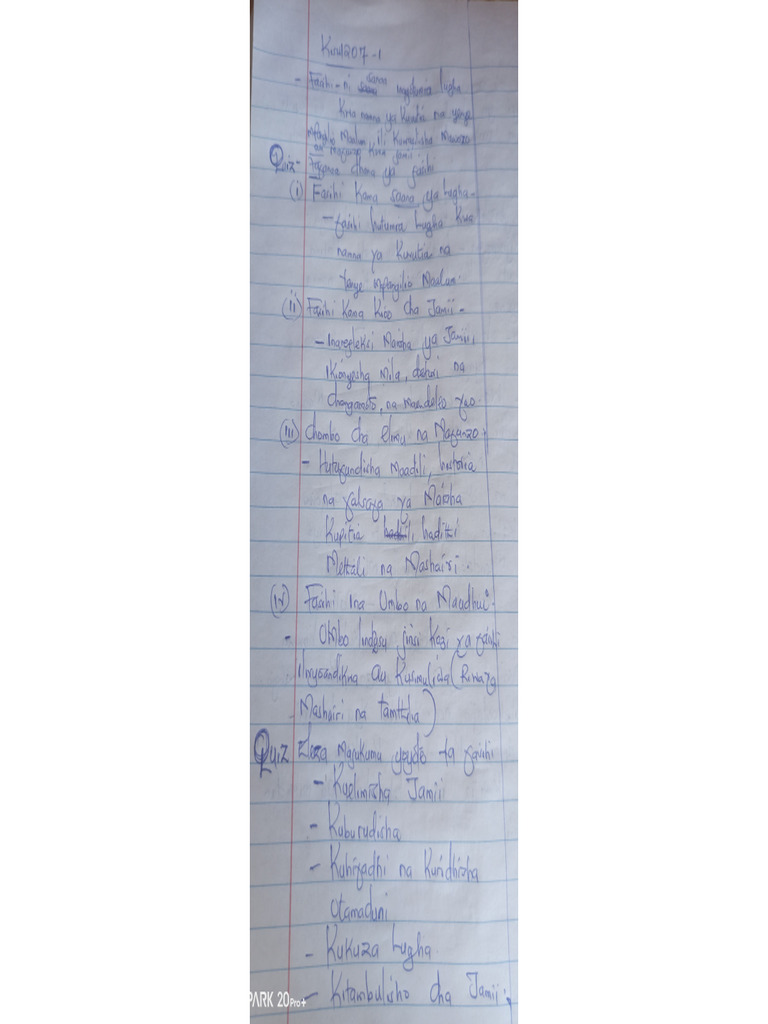 - Fasihi - ni sanaa inayotumia lugha
kwa namna ya kuvutia na yenye
mpangilio Maalum ili kuwasilisha Mawazo
kwa jamii
Quiz - dhana ya fasihi
(i) Fasihi Kama sanaa ya lugha -
- fasihi hutumia lugha kwa
namna ya Kuvutia na
yenye mpangilio Maalum.
(ii) Fasihi Kama Kioo cha Jamii -
- Inareflekti Maisha ya Jamii,
Ikionyesha Mila, desturi na
na Maendeleo yao.
(iii) Chombo cha elimu na Mafunzo
- Hutufundisha Maadili, historia
na falsafa ya Maisha
Kupitia hadithi
Methali na Mashairi.
(iv) Fasihi Ina Umbo na Maudhui.
- Umbo jinsi Kazi ya fasihi
au Kusimuliwa (Riwaya
Mashairi na tamthlia)
Quiz Eleza Majukumu ya fasihi
- Kuelimisha Jamii
- Kuburudisha
- Kuhifadhi na Kuridhisha
Utamaduni
- Kukuza Lugha
- Kitambulisho cha Jamii.
PARK 20 Pro+